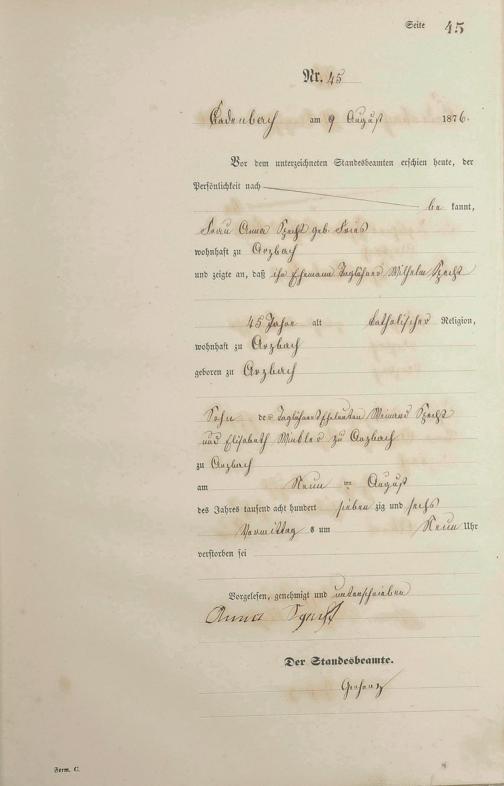 Seite 45
Nr. 45
Cadenbach am 9 August 1876.
Vor dem unterzeichneten Standesbeamten erschien heute, der
Persönlichkeit nach
be kannt,
Frau Anna Specht geb. Fries
wohnhaft zu Arzbach
und zeigte an, daß ihr Ehemann Taglöhner Wilhelm Specht
45 Jahre alt katholischer Religion,
wohnhaft zu Arzbach
geboren zu Arzbach
Sohn der Taglöhners Eheleuten Specht
und Elisabeth Winkler zu Arzbach
zu Arzbach
am Neun ten August
des Jahres tausend acht hundert sieben zig und sechs
Vormittag s um Neun Uhr
verstorben sei
Vorgelesen, genehmigt und unterschrieben
Anna Specht
Der Standesbeamte.
Form. C.